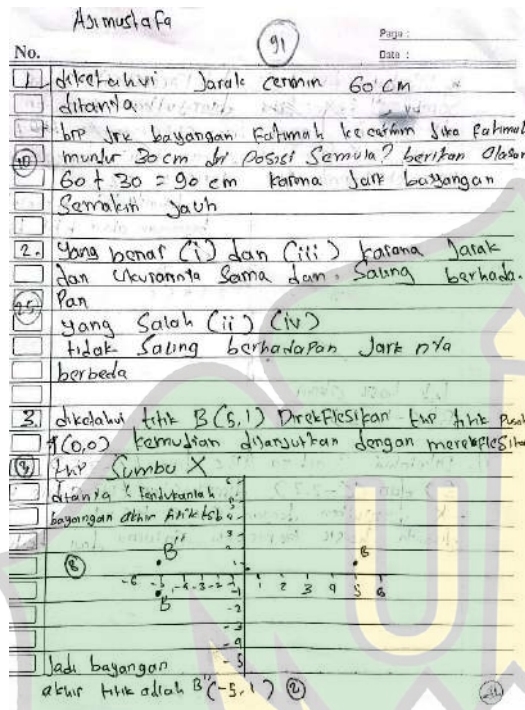 Asimustafa
91
Page :
Date :
No.
1. diketahui Jarak cermin 60 cm
ditanya
brp Jrk bayangan Fatimah ke cermin Jika Fatimah
mundur 30 cm dri Posisi Semula? berikan alasan
10
60 + 30 = 90 cm karena Jark bayangan
Semakin Jauh
2. yang benar (i) dan (iii) karana Jarak
dan Ukurannya Sama dan Saling berhada-
Pan
25
yang Salah (ii) (iv)
tidak Saling berhadapan Jark nya
berbeda
3. diketahui titik B (5, 1) Direkflesikan thp titik Pusat
(0,0) kemudian dilanjutkan dengan
thp Sumbu X
ditanya : Tentukanlah
bayangan akhir titik tsb
8
B B
-6 -5 -4 -3 -2 1 2 3 4 5 6
B
-2
-3
-4
-5
Jadi bayangan
akhir titik adlah B"(-5, 1) 2